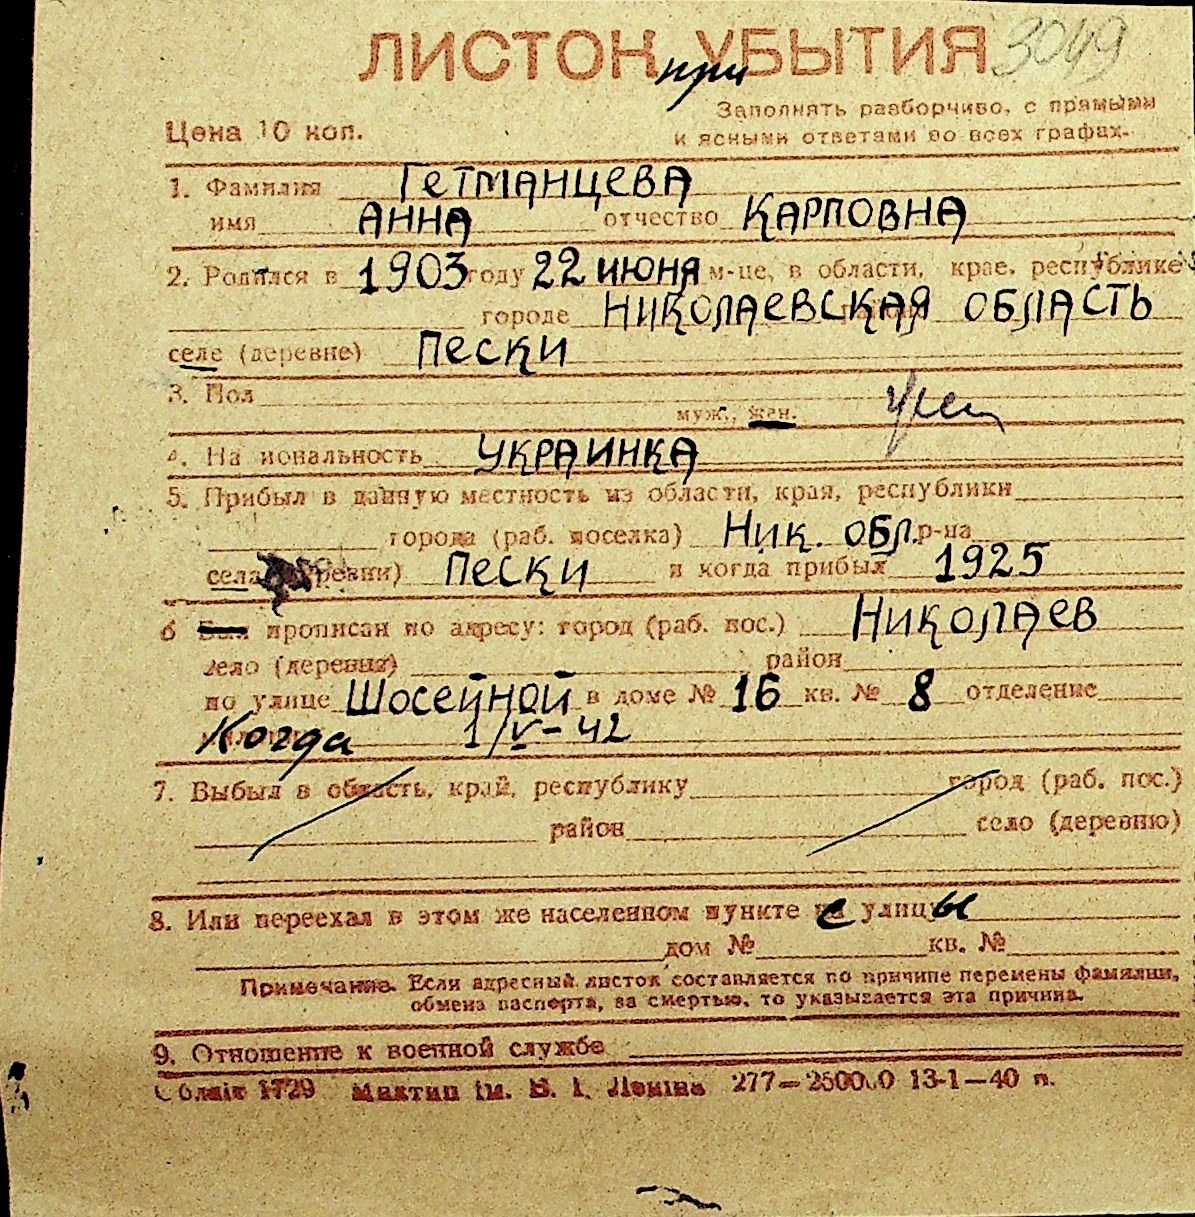 ЛИСТОК при УБЫТИЯ 3049
Заполнять разборчиво, с прямыми
Цена 10 коп.
и ясными ответами во всех графах.
1. Фамилия ГЕТМАНЦЕВА
имя АННА отчество КАРПОВНА
2. Родился в 1903 году 22 ИЮНЯ м-це, в области, крае, республике
городе НИКОЛАЕВСКАЯ ОБЛАСТЬ
селе (деревне) ПЕСКИ
3. Пол
муж., жен.
4. Национальность УКРАИНКА
5. Прибыл в данную местность из области, края, республики
города (раб. поселка) Ник. обл. р-на
села (деревни) ПЕСКИ и когда прибыл 1925
6 Был прописан по адресу: город (раб. пос.) НИКОЛАЕВ
село (деревня) район
по улице ШОСЕЙНОЙ в доме № 16 кв. № 8 отделение
Когда 1/V-42
7. Выбыл в область, край, республику город (раб. пос.)
район село (деревню)
8. Или переехал в этом же населенном пункте с улицы
дом № кв. №
Примечание. Если адресный листок составляется по причине перемены фамилии,
обмена паспорта, за смертью, то указывается эта причина.
9. Отношение к военной службе
Облліт 1729 Миктип ім. В. І. Леніна 277—250000 13-1—40 п.